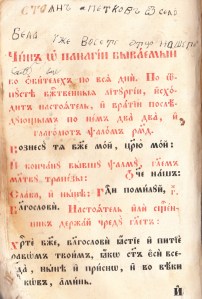 СТОꙖНЪ ПЕТКОВЪ ѾСЕЛО
БЕЛА
Чи́нъ ѡ҆ панагі́и быва́емый
во ѻ҆би́телехъ по всѧ̑ дни̑. По ѿ-
пꙋ́стѣ бж҃е́ственныѧ літꙋргі́и, и҆схо́-
дитъ настоѧ́тель, и҆ бра́тїи послѣ́-
дꙋющымъ по не́мъ два̀ два̀, и҆
глаго́лютъ ѱало́мъ
Вознесꙋ́ тѧ бж҃е мо́й, цр҃ю̀ мо́й:
И҆ сконча́нꙋ бы́вшꙋ ѱалмꙋ̀, гл҃емъ
мл҃твꙋ трапе́зы: Ѻ҆́ч҃е на́шъ:
Сла́ва, и҆ ны́нѣ: Гдⷭ҇и поми́лꙋй, г҃.
Бл҃гословѝ. Настоѧ́тель и҆лѝ сщ҃е́н-
никъ держа́й чредꙋ̀ гл҃етъ:
Хрⷭ҇тѐ бж҃е, бл҃гословѝ ꙗ҆́стїе и҆ питїѐ
рабѡ́мъ твои̑мъ, ꙗ҆́кѡ ст҃ъ є҆сѝ все-
гда̀, ны́нѣ и҆ при́снѡ, и҆ во вѣ́ки
вѣкѡ́въ, а҆ми́нь.
И҆